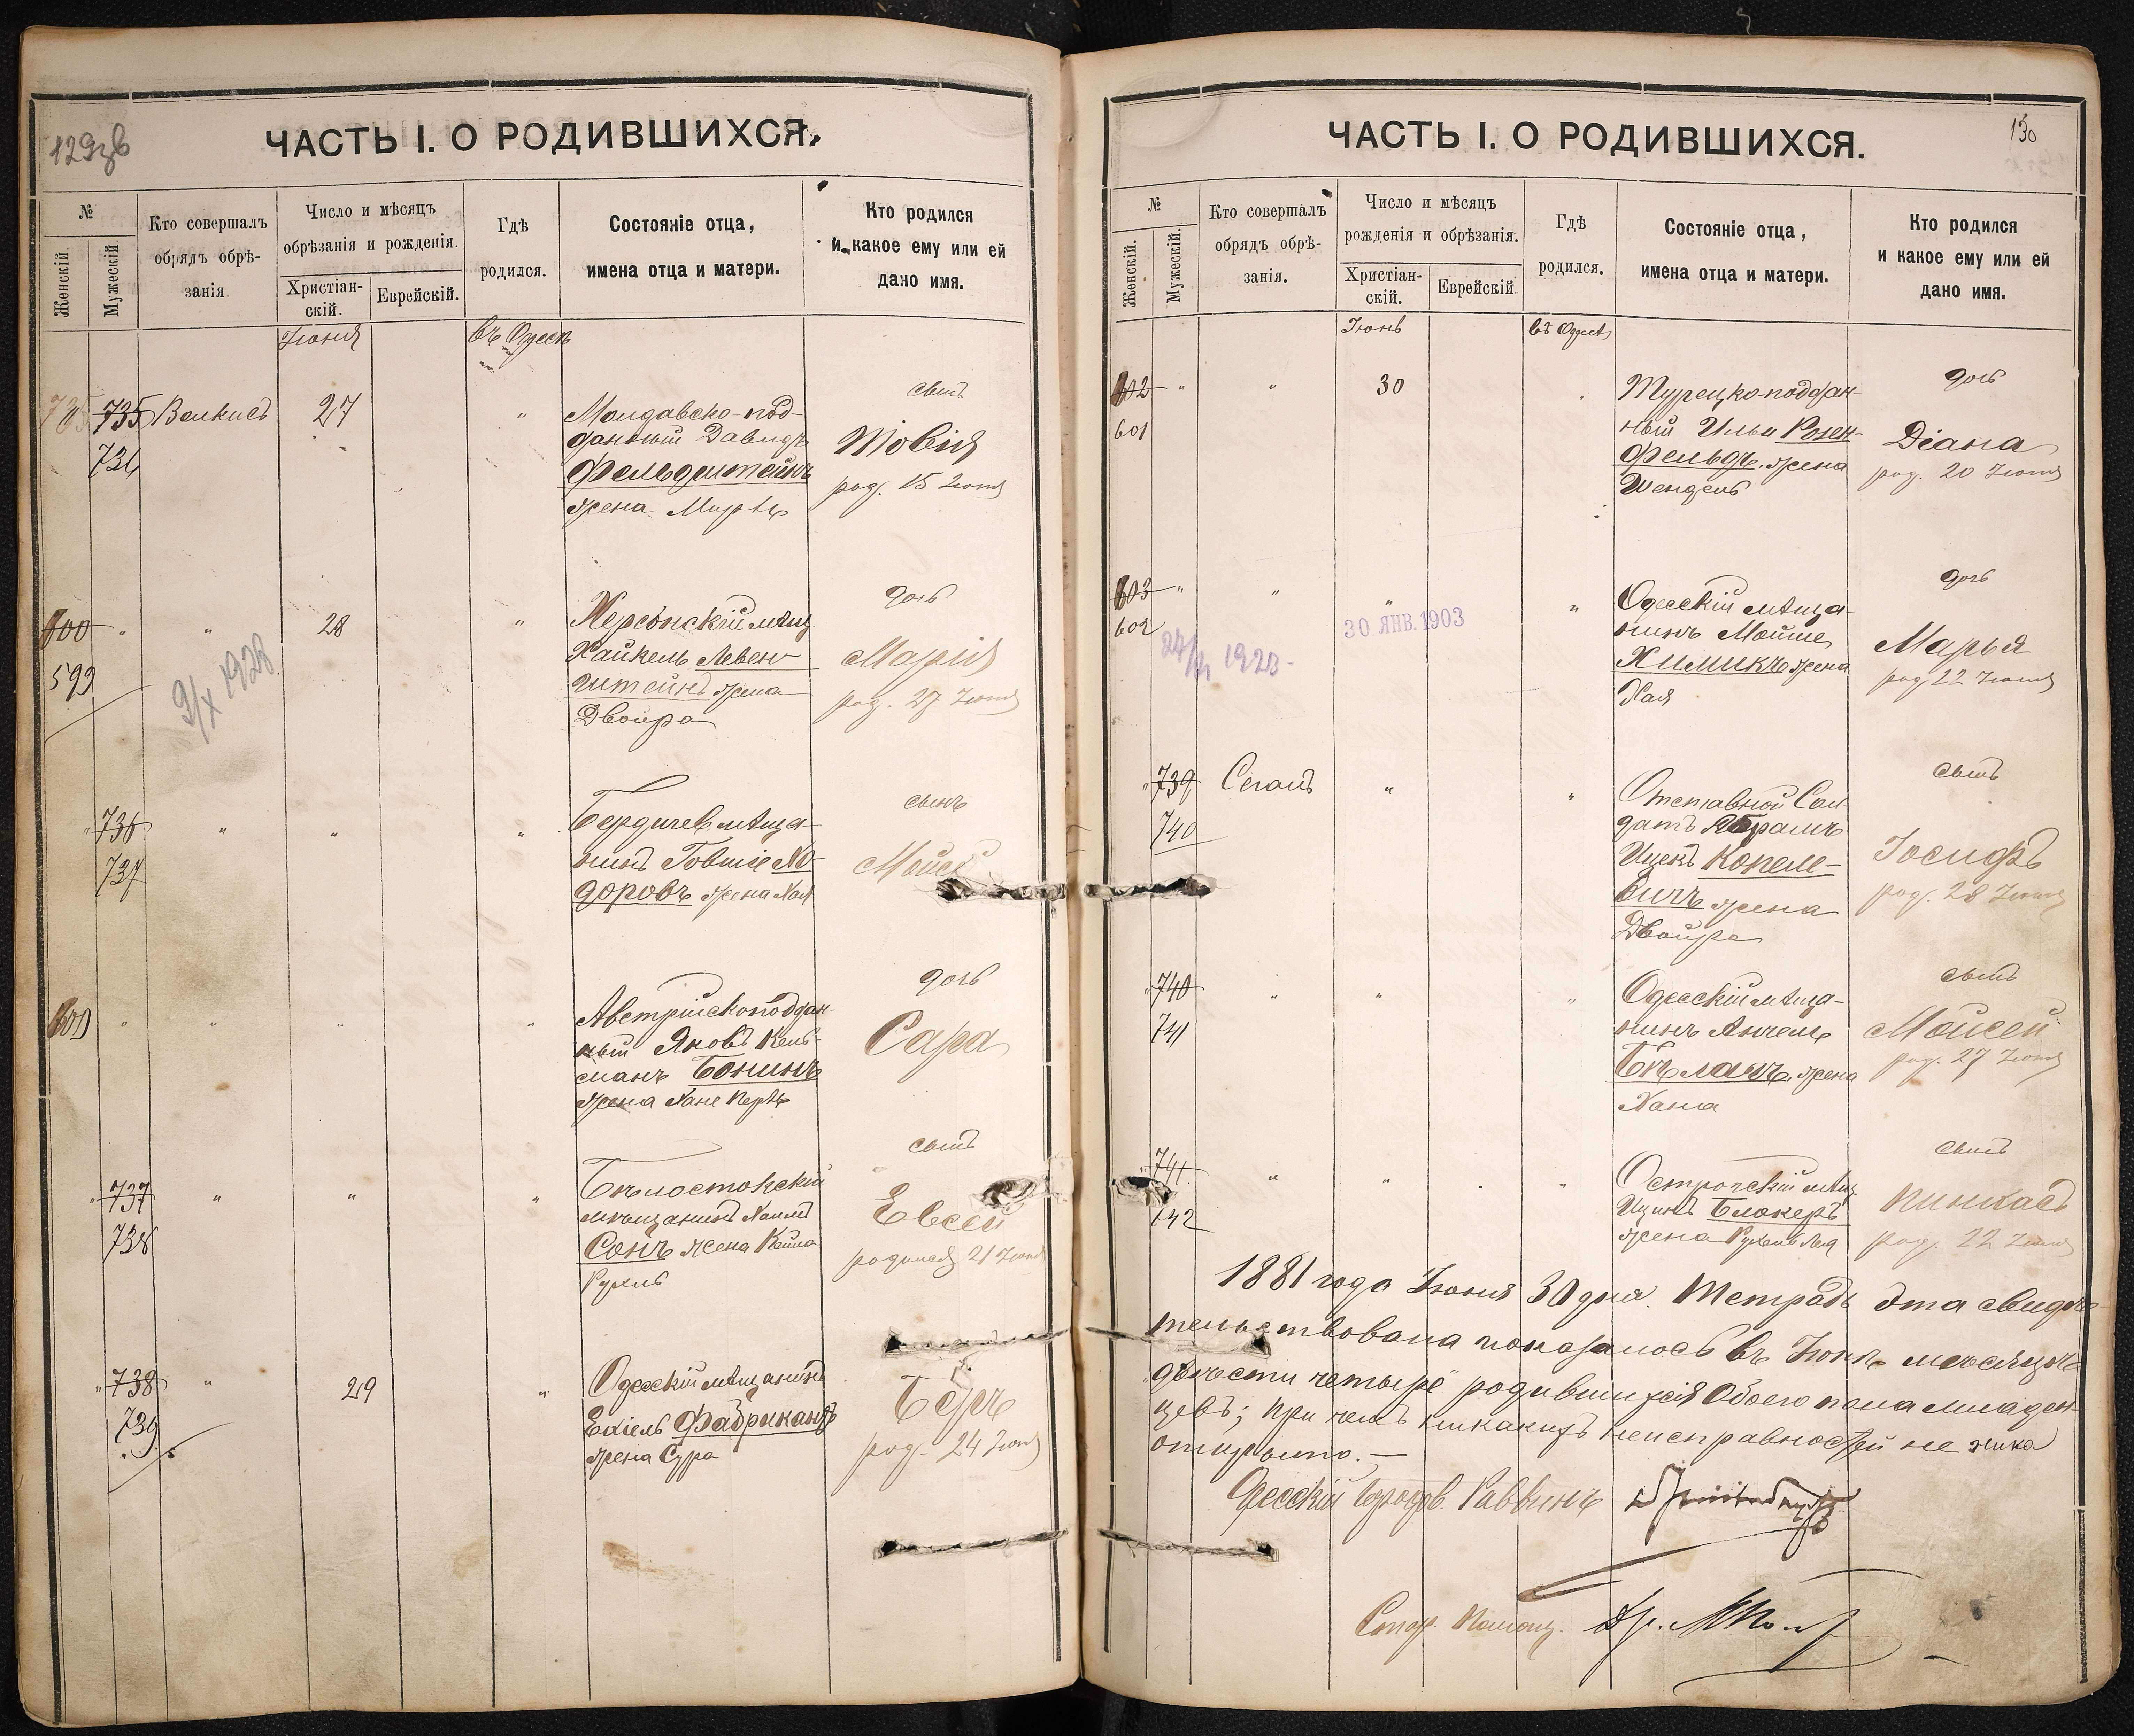 129об
ЧАСТЬ I. О РОДИВШИХСЯ.
№
Женскій.
Мужескій.
Кто совершалъ
обрядъ обрѣ-
занія
Число и мѣсяцъ
обрѣзанія и рожденія.
Христіан-
скій.
Еврейскій.
Гдѣ
родился.
Состояніе отца,
имена отца и матери.
Кто родился
и какое ему или ей
дано имя.
Іюня
въ Одессѣ
735
736
27
"
Молдавско-под-
данный Давидъ
Фельдштейнъ
жена
сынъ
Товія
род. 15 Іюня
600
599
"
"
9/X 1928
28
"
Херсонскій мѣщ.
Хайкель Левен-
штейнъ жена
Двойра
дочь
Марія
род. 27 Іюня
"
736
737
"
"
"
Бердичев мѣща-
нинъ
доровъ жена Хая
сынъ
Мойсей
600
"
"
"
"
Австрійскоподдан-
ный Яковъ Кель-
манъ Бонинъ
жена
дочь
Сара
"
737
738
"
"
"
Бѣлостокскій
мѣщанинъ Хаимъ
Сонъ жена Кейла
Рухль
сынъ
Евсей
родился 21 Іюня
"
738
739
"
29
"
Одесскій мѣщанинъ
Ехіель Фабрикантъ
жена Сура
сынъ
Беръ
род. 24 Іюня
130
ЧАСТЬ I. О РОДИВШИХСЯ.
№
Женскій.
Мужескій.
Кто совершалъ
обрядъ обрѣ-
занія.
Число и мѣсяцъ
рожденія и обрѣзанія.
Христіан-
скій.
Еврейскій
Гдѣ
родился.
Состояніе отца,
имена отца и матери.
Кто родился
и какое ему или ей
дано имя.
Іюнь
въ Одессѣ
602
601
"
"
30
Турецко-поддан-
ный Илья Розен-
фельдъ. жена
Шендель
дочь
Діана
род. 20 Іюня
603
602
"
"
"
30 ЯНВ. 1903
1923
"
Одесскій мѣща-
нинъ Мойше
Химикъ жена
Хая
дочь
Марья
род 22 Іюня
"
739
740
Сегалъ
"
"
Отставной Сол-
датъ Абрамъ
Ицекъ Копеле-
вичъ жена
Двойра
сынъ
Іосифъ
род. 28 Іюня
"
740
741
"
"
"
Одесскій мѣща-
нинъ Анчель
жена
Хана
сынъ
Мойсей
род. 27 Іюня
"
741
742
"
"
"
Острогскій мѣщ.
Ицикъ Блокеръ
жена
сынъ
Пинхасъ
род. 22 Іюня
1881 года Іюня 30 дня. Тетрадь эта свидѣ-
тельствована показалось въ Іюнѣ мѣсяцѣ
двѣсти четыре родившихся обоего пола младен-
цевъ; при чемъ никакихъ неисправностей не
открыто. —
Одесскій Раввинъ
Стар. Помощ. Др.